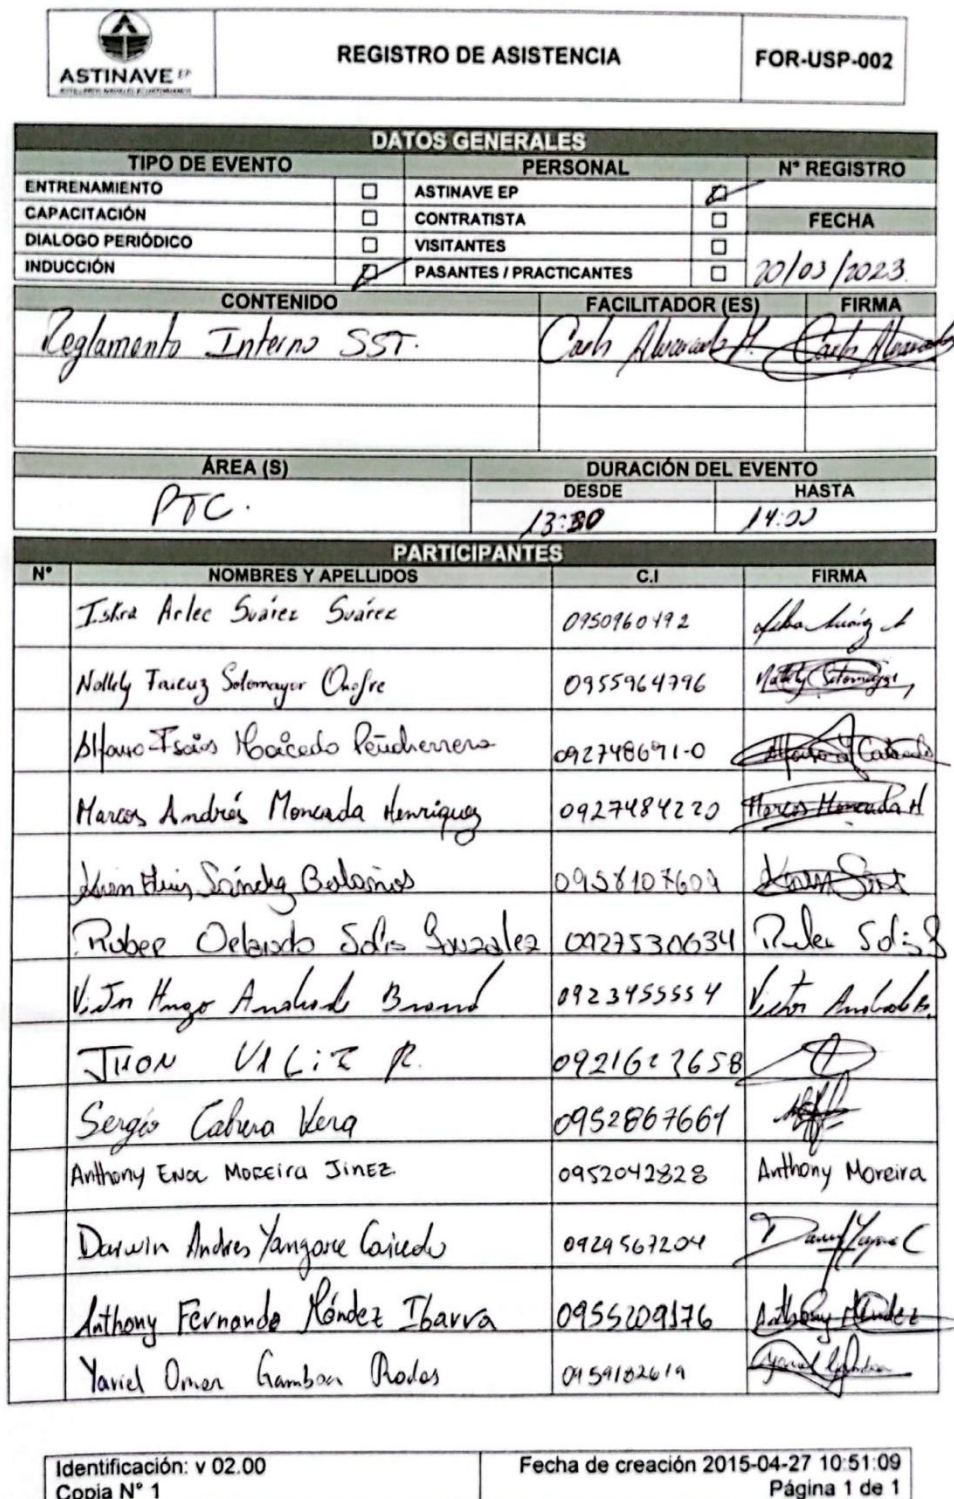 ASTINAVE EP
REGISTRO DE ASISTENCIA
FOR-USP-002
DATOS GENERALES
TIPO DE EVENTO PERSONAL N° REGISTRO
ENTRENAMIENTO ASTINAVE EP
CAPACITACIÓN CONTRATISTA FECHA
DIALOGO PERIÓDICO VISITANTES
INDUCCIÓN PASANTES / PRACTICANTES 20/03/2023.
CONTENIDO FACILITADOR (ES) FIRMA
Reglamento Interno SST. Carlos Alvarado Carlos Alvarado
ÁREA (S) DURACIÓN DEL EVENTO
DESDE HASTA
PTC. 13:30 14:00
PARTICIPANTES
N° NOMBRES Y APELLIDOS C.I FIRMA
Iskra Arlec Suárez Suárez 0950960492
Sotomayor Onofre 0955964796 Sotomayor
Caicedo Peñaherrera 092748691-0
Marcos Andrés Moncada Henriquez 0927484220 Marcos Moncada H
Sánchez Bolaños
Solis Gonzalez 0927530634 Solis
Victor Hugo Andrade 0923455554 Victor Andrade B.
JHON R.
Sergio Cabrera Vera
Anthony Enoc Moreira Jinez 0952042828 Anthony Moreira
Darwin Andres Caicedo 0929567204
Anthony Fernando Méndez Ibarra 0955209176 Anthony Méndez
Yariel Omar Gamboa Rodas
Identificación: v 02.00 Fecha de creación 2015-04-27 10:51:09
Copia N° 1 Página 1 de 1